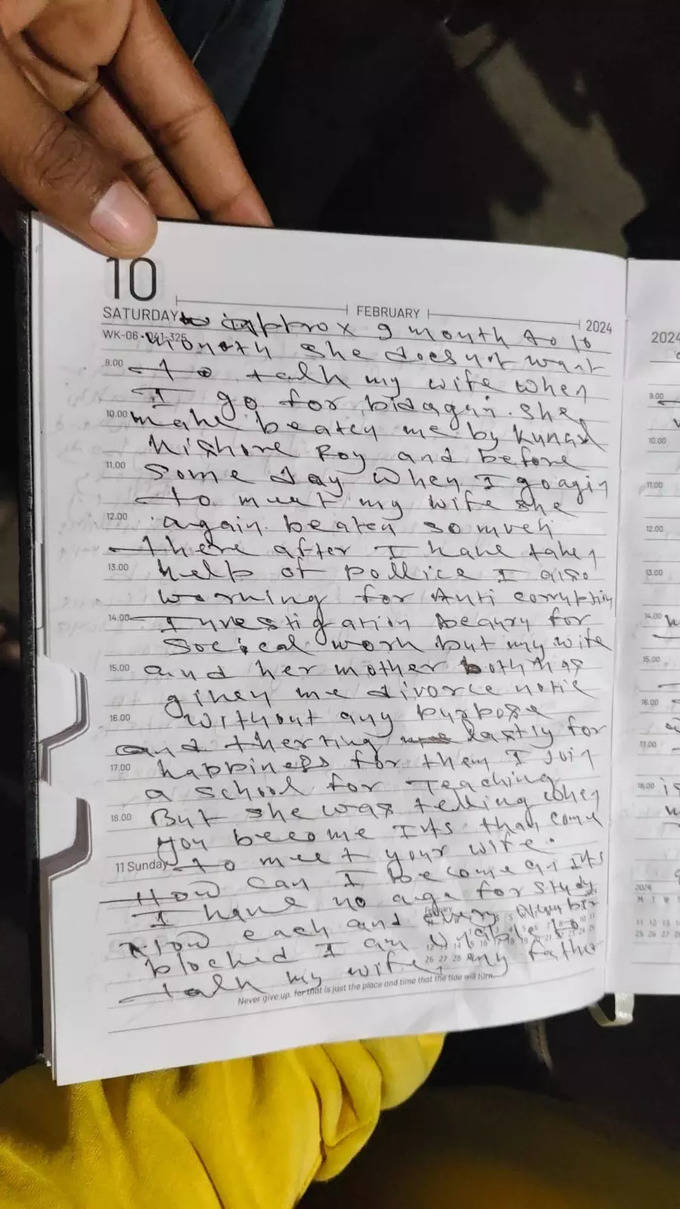 10
SATURDAY
FEBRUARY
2024
WK-06
approx 9 month to 10
month she does not want
9.00 to talk my wife when
I go for bidagiri. she
10.00 make beaten me by Kunal
Kishore Roy and before
11.00 some day when I goagin
to meet my wife she
12.00 again beaten so mveh
there after I have taken
13.00 help of pollice I also
worning for Anti corruption
14.00 Investigation for
Socical work but my wife
15.00 and her mother both has
given me divorce notic
16.00 without any purpose
and lastly for
17.00 happiness for them I Join
a school for Teaching
18.00 But she was telling when
you become than come
11 Sunday to meet your wife.
How can I become an
I have no age for study
Now each and every
blocked I am to
talk my wife, my father
Never give up, for that is just the place and time that the tide will turn.
2024
9.00
10.00
11.00
12.00
13.00
14.00
15.00
16.00
17.00
18.00
2024
M T W
11 12 13
25 26 27